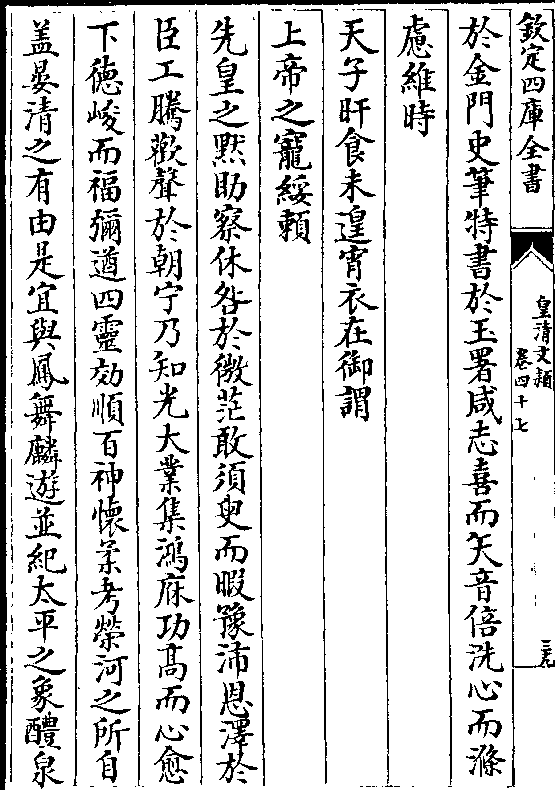 欽定四庫全書
皇清文穎
卷四十七
三九
於金門史筆特書於玉署咸志喜而矢音倍洗心而滌
慮維時
天子旰食未遑宵衣在御謂
上帝之寵綏賴
先皇之黙助察休咎於微茫敢須臾而暇豫沛恩澤於
臣工騰歡聲於朝宁乃知光大業集鴻庥功髙而心愈
下徳峻而福彌遒四靈効順百神懷柔考榮河之所自
盖晏清之有由是宜與鳳舞麟遊並紀太平之象醴泉